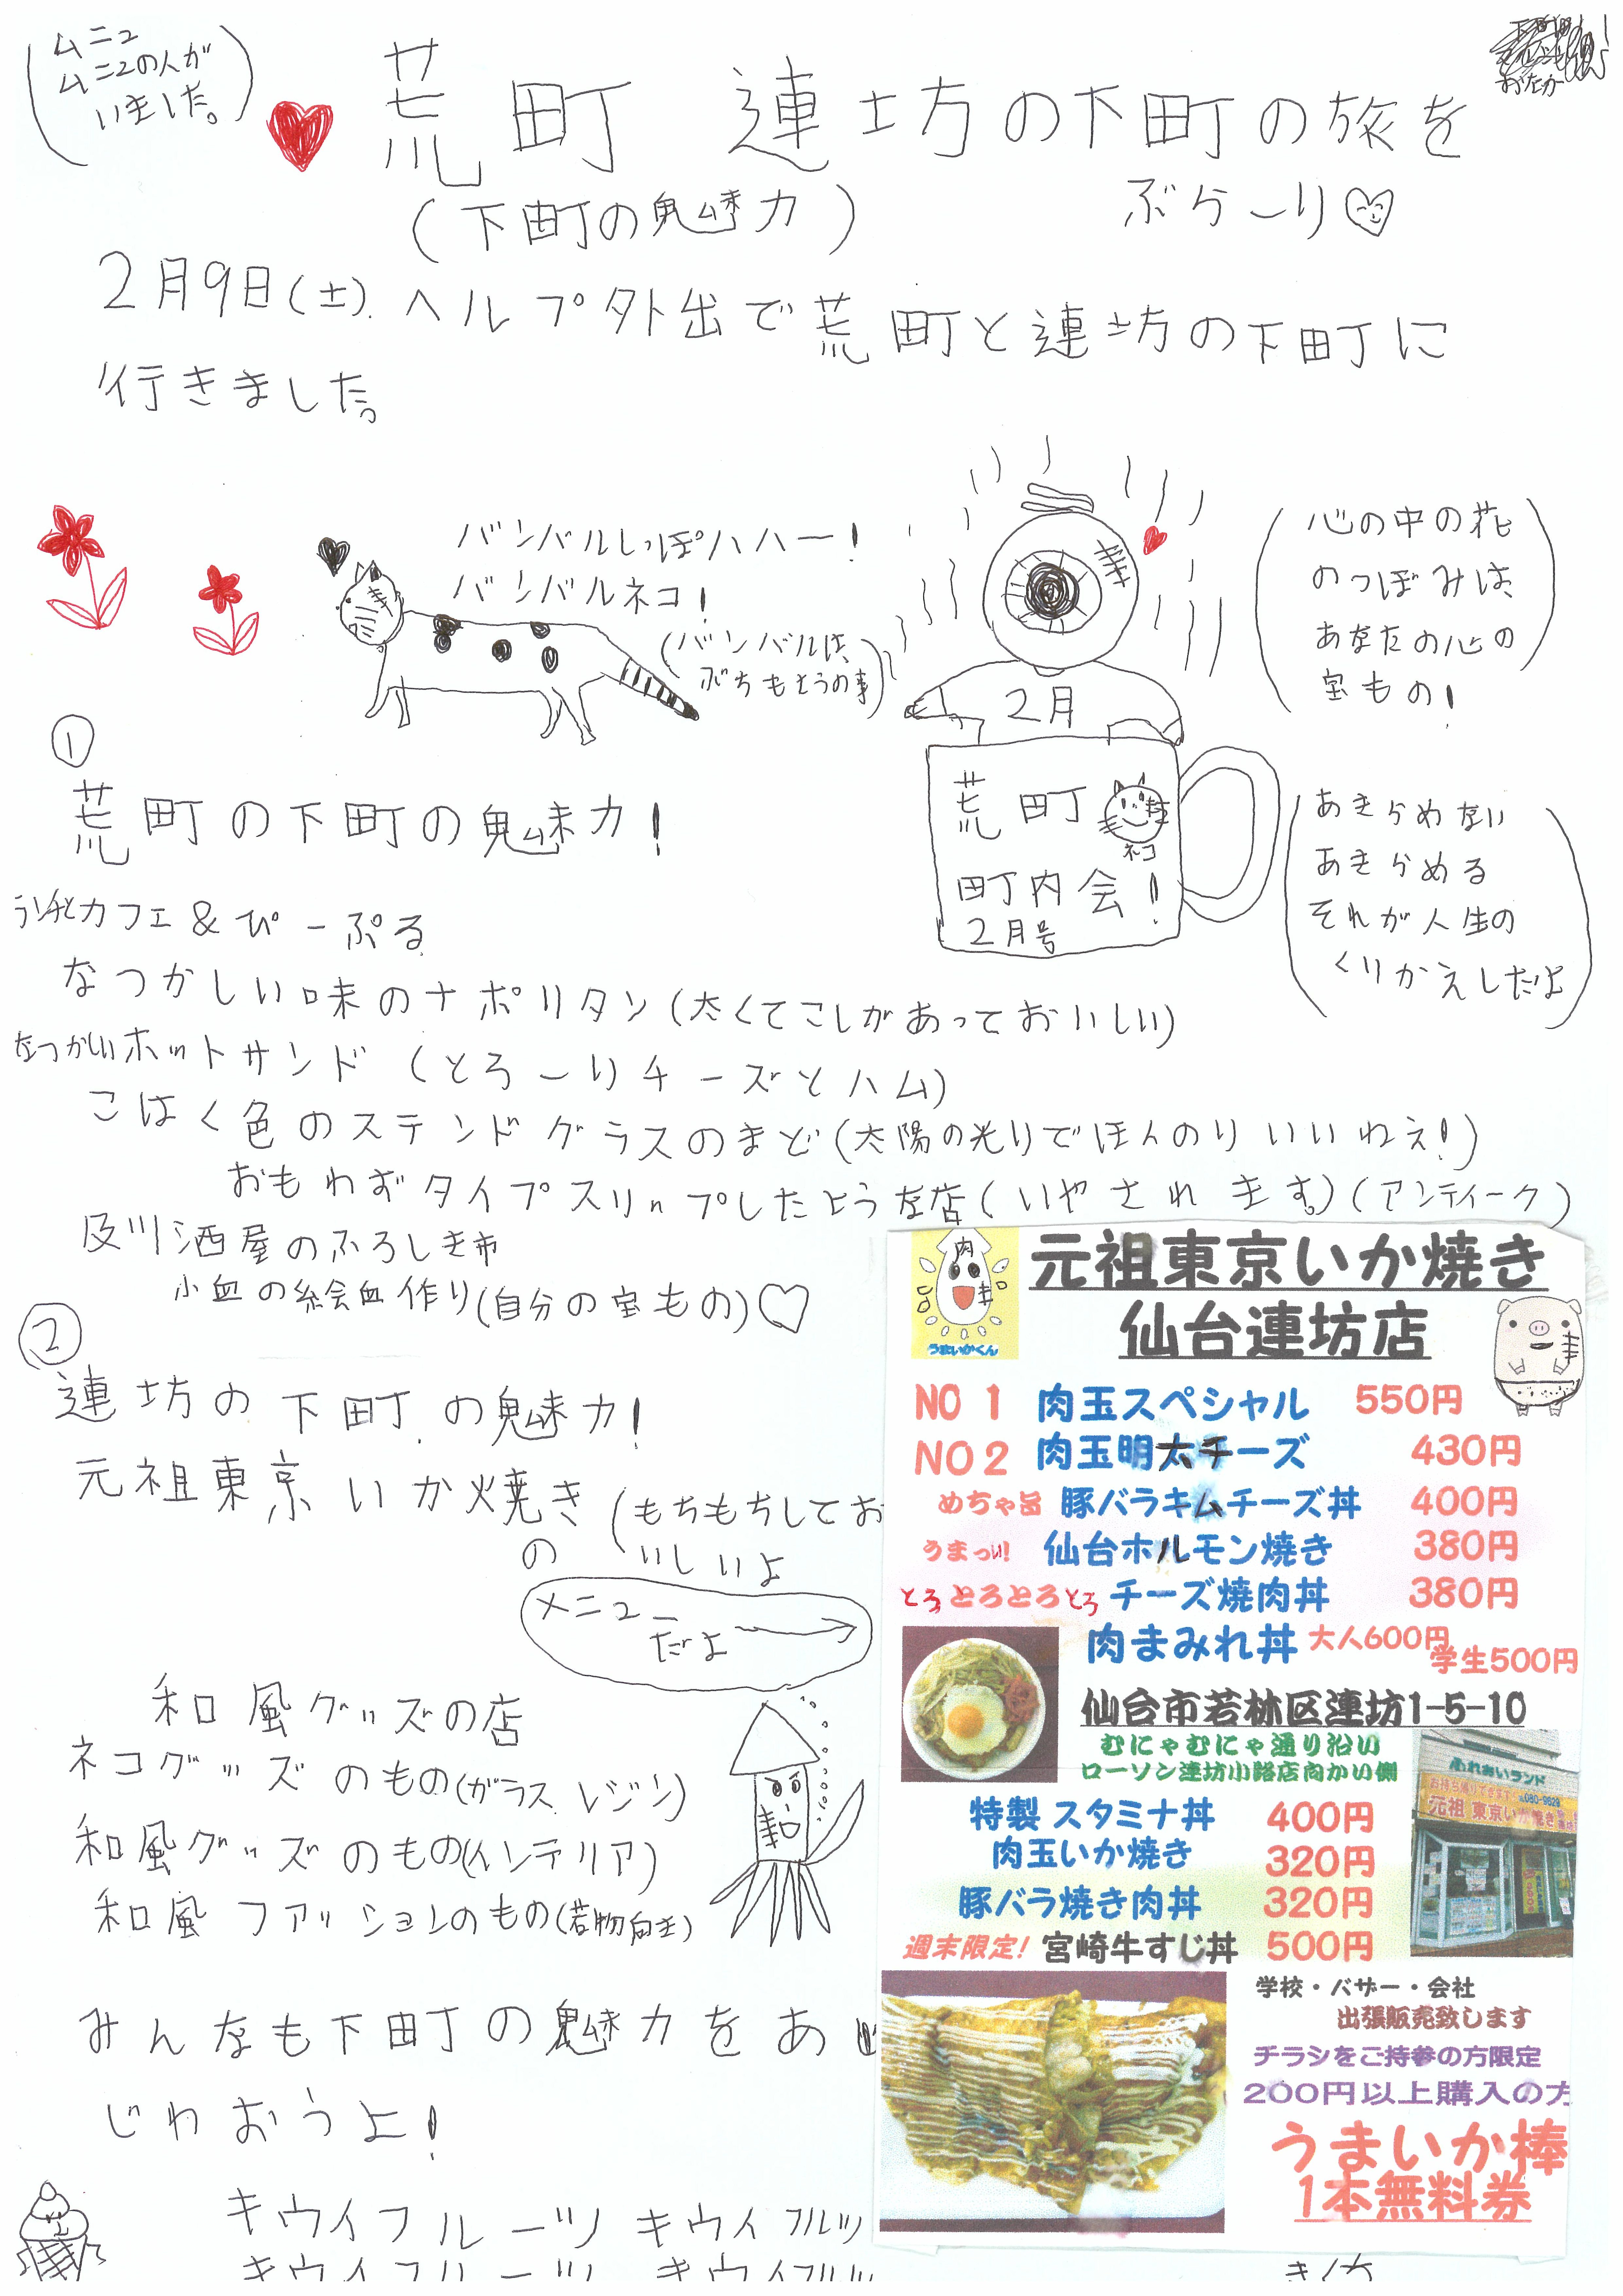 ムニュ
ムニュの人が
いました。
おたか
荒町 連坊の下町の旅を
ぶらーり
(下町の魅力)
2月9日(土).ヘルプ外出で荒町と連坊の下町に
行きました。
バンバルしっぽハハー!
バンバルネコ!
(バンバルは、
ぶちもようの事)
2月
荒町
ネコ
町内会!
2月号
心の中の花
のつぼみは、
あなたの心の
宝もの!
あきらめない
あきらめる
それが人生の
くりかえしだよ
①
荒町の下町の魅力!
ランチとカフェ&ぴーぷる
なつかしい味のナポリタン(太くてこしがあっておいしい)
なつかしいホットサンド(とろーりチーズとハム)
こはく色のステンドグラスのまど(太陽の光りでほんのりいいねえ!)
おもわずタイプスリップしたような店(いやされます。)(アンティーク)
及川酒屋のふろしき市
小皿の絵皿作り(自分の宝もの)
②
連坊の下町.の魅力!
元祖東京いか焼き(もちもちしてお
の いしいよ
メニュー
だよ
和風グッズの店
ネコグッズのもの(ガラス レジン)
和風グッズのもの(インテリア)
和風ファッションのもの(着物向き)
みんなも下町の魅力をあ
じわおうよ!
キウイフルーツ キウイフルツ
キウイフルーツ キウイフルツ
肉
うまいかくん
元祖東京いか焼き
仙台連坊店
NO 1 肉玉スペシャル 550円
NO2 肉玉明太チーズ 430円
めちゃ旨 豚バラキムチーズ丼 400円
うまっい! 仙台ホルモン焼き 380円
とろとろとろとろ チーズ焼肉丼 380円
肉まみれ丼 大人600円
学生500円
仙台市若林区連坊1-5-10
むにゃむにゃ通り沿い
ローソン連坊小路店向かい側
特製 スタミナ丼 400円
肉玉いか焼き 320円
豚バラ焼き肉丼 320円
週末限定! 宮崎牛すじ丼 500円
ふれあいランド
元祖 東京いか焼き
学校・バザー・会社
出張販売致します
チラシをご持参の方限定
200円以上購入の方
うまいか棒
1本無料券